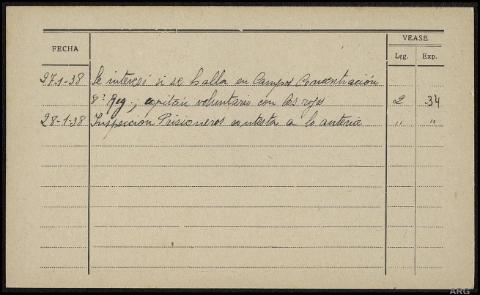 FECHA
VEASE
Leg. Exp.
27-1-38 Se interesó si se halla en Campos Concentración
8ª Reg., capitán voluntario con los rojos 2 34
28-1-38 Inspeccion Prisioneros contesta a lo anterior " "
ARG